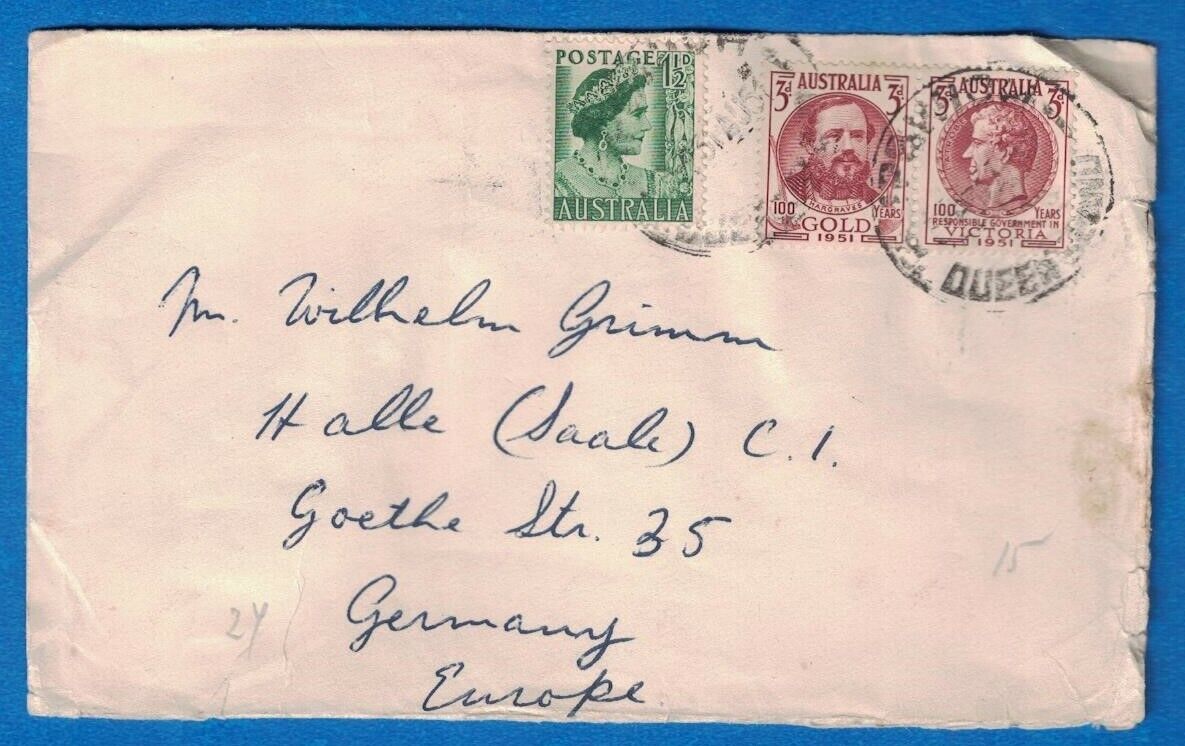 POSTAGE 1½D
AUSTRALIA
AUSTRALIA
3d 3d
HARGRAVES
100 YEARS
GOLD
1951
AUSTRALIA
3d 3d
100 YEARS
RESPONSIBLE GOVERNMENT IN
VICTORIA
1951
Mr. Wilhelm Grimm
Halle (Saale) C. 1.
Goethe Str. 35
Germany
Europe
24
15